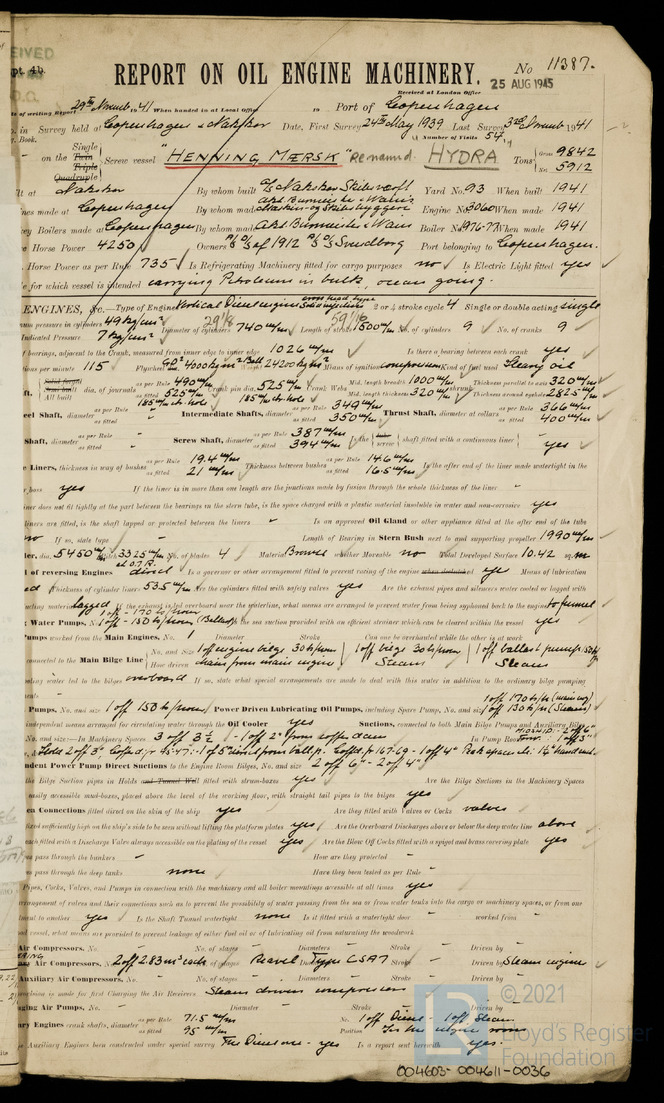 EIVED
pt. 4b.
REPORT ON OIL ENGINE MACHINERY.
No 11387.
Received at London Office
25 AUG 1945
of writing Report 29th Novemb. 1941 When handed in at Local Office 19 Port of Copenhagen
in Survey held at Copenhagen & Nakskov Date, First Survey 24th May 1939 Last Survey 3rd Novemb 1941
Book. Number of Visits 54
on the Single Twin Triple Quadruple Screw vessel "HENNING MÆRSK" Renamed "HYDRA" Tons Gross 9842 Net 5912
lt at Nakskov By whom built A/S Nakskov Skibsværft Yard No. 93 When built 1941
ines made at Copenhagen By whom made Akts Burmeister & Wain's Maskin- og Skibsbyggeri Engine No. 3060 When made 1941
ey Boilers made at Copenhagen By whom made Akts Burmeister & Wain Boiler No. 1976-77 When made 1941
e Horse Power 4250 Owners A/S D/S of 1912 & D/S Svendborg Port belonging to Copenhagen.
Horse Power as per Rule 735 Is Refrigerating Machinery fitted for cargo purposes no Is Electric Light fitted yes
e for which vessel is intended carrying Petroleum in bulk, ocean going.
ENGINES, &c. Type of Engine Vertical Diesel engine cross head type Solid injection 2 or 4 stroke cycle 4 Single or double acting single
um pressure in cylinders 49 kg/cm² Diameter of cylinders 740 m/m Length of stroke 1500 m/m No. of cylinders 9 No. of cranks 9
29 1/8 59 1/16
Indicated Pressure 7 kg/cm²
f bearings, adjacent to the Crank, measured from inner edge to inner edge 1026 m/m Is there a bearing between each crank yes
tions per minute 115 Flywheel Weight Means of ignition compression Kind of fuel used Heavy oil
Solid forged Semi built All built dia. of journals as per Rule 490 m/m as fitted 525 m/m Crank pin dia. 525 m/m Crank Webs Mid. length breadth 1000 m/m Mid. length thickness 320 m/m Thickness parallel to axis 320 m/m Thickness around eyehole 282.5 m/m
eel Shaft, diameter as per Rule - as fitted - Intermediate Shafts, diameter as per Rule 349 m/m as fitted 350 m/m Thrust Shaft, diameter at collars as per Rule 366 m/m as fitted 400 m/m
Shaft, diameter as per Rule - as fitted - Screw Shaft, diameter as per Rule 387 m/m as fitted 394 m/m Is the tube screw shaft fitted with a continuous liner yes
e Liners, thickness in way of bushes as per Rule 19.4 m/m as fitted 21 m/m Thickness between bushes as per Rule 14.6 m/m as fitted 16.5 m/m Is the after end of the liner made watertight in the
r boss yes If the liner is in more than one length are the junctions made by fusion through the whole thickness of the liner -
iner does not fit tightly at the part between the bearings in the stern tube, is the space charged with a plastic material insoluble in water and non-corrosive yes
liners are fitted, is the shaft lapped or protected between the liners - Is an approved Oil Gland or other appliance fitted at the after end of the tube
no If so, state type Length of Bearing in Stern Bush next to and supporting propeller 1990 m/m
ler, dia. 5450 m/m Pitch 3325 m/m at 0.7R. No. of blades 4 Material Bronze whether Moveable no Total Developed Surface 10.42 sq. m
d of reversing Engines direct Is a governor or other arrangement fitted to prevent racing of the engine when declutched yes Means of lubrication
ed Thickness of cylinder liners 53.5 m/m Are the cylinders fitted with safety valves yes Are the exhaust pipes and silencers water cooled or lagged with
ucting material lagged If the exhaust is led overboard near the waterline, what means are arranged to prevent water from being syphoned back to the engine to funnel
g Water Pumps, No. 1 off - 170 ts/hour 1 off - 150 ts/hour (Ballast) Is the sea suction provided with an efficient strainer which can be cleared within the vessel yes
Pumps worked from the Main Engines, No. 1 Diameter Stroke Can one be overhauled while the other is at work
connected to the Main Bilge Line No. and Size 1 off engine bilge 30 ts/hour 1 off bilge 30 ts/hour 1 off ballast pump 150 ts/h
How driven chain from main engine Steam Steam
ing water led to the bilges overboard If so, state what special arrangements are made to deal with this water in addition to the ordinary bilge pumping
ents -
Pumps, No. and size 1 off 150 ts/hour Power Driven Lubricating Oil Pumps, including Spare Pump, No. and size 1 off 170 ts/h (main eng) 1 off 130 ts/h (Steam)
independent means arranged for circulating water through the Oil Cooler yes Suctions, connected to both Main Bilge Pumps and Auxiliary Bilge
No. and size:—In Machinery Spaces 3 off 3½ - 1 off 2" from cofferdam In Pump Room
ndent Power Pump Direct Suctions to the Engine Room Bilges, No. and size 2 off 6" - 2 off 4"
the Bilge Suction pipes in Holds and Tunnel Well fitted with strum-boxes yes Are the Bilge Suctions in the Machinery Spaces
easily accessible mud-boxes, placed above the level of the working floor, with straight tail pipes to the bilges yes
ea Connections fitted direct on the skin of the ship yes Are they fitted with Valves or Cocks valves
fixed sufficiently high on the ship's side to be seen without lifting the platform plates yes Are the Overboard Discharges above or below the deep water line above
each fitted with a Discharge Valve always accessible on the plating of the vessel yes Are the Blow Off Cocks fitted with a spigot and brass covering plate yes
es pass through the bunkers - How are they protected -
es pass through the deep tanks none Have they been tested as per Rule -
Pipes, Cocks, Valves, and Pumps in connection with the machinery and all boiler mountings accessible at all times yes
rrangement of valves and their connections such as to prevent the possibility of water passing from the sea or from water tanks into the cargo or machinery spaces, or from one
tment to another yes Is the Shaft Tunnel watertight none Is it fitted with a watertight door - worked from -
od vessel, what means are provided to prevent leakage of either fuel oil or of lubricating oil from saturating the woodwork -
Air Compressors, No. - No. of stages - Diameters - Stroke - Driven by -
Air Compressors, No. 2 off 2.83 m³ each No. of stages Reavell Diameters Type CSA7 Stroke Driven by Steam engine
Auxiliary Air Compressors, No. - No. of stages - Diameters - Stroke - Driven by -
rovision is made for first Charging the Air Receivers Steam driven compressor
ging Air Pumps, No. - Diameter - Stroke - Driven by -
ary Engines crank shafts, diameter as per Rule 71.5 m/m as fitted 95 m/m No. 1 off Diesel - 1 off Steam Position In the engine room
e Auxiliary Engines been constructed under special survey The Diesel one - yes Is a report sent herewith yes.
© 2021
LR
Lloyd's Register
Foundation
004603-004611-0036